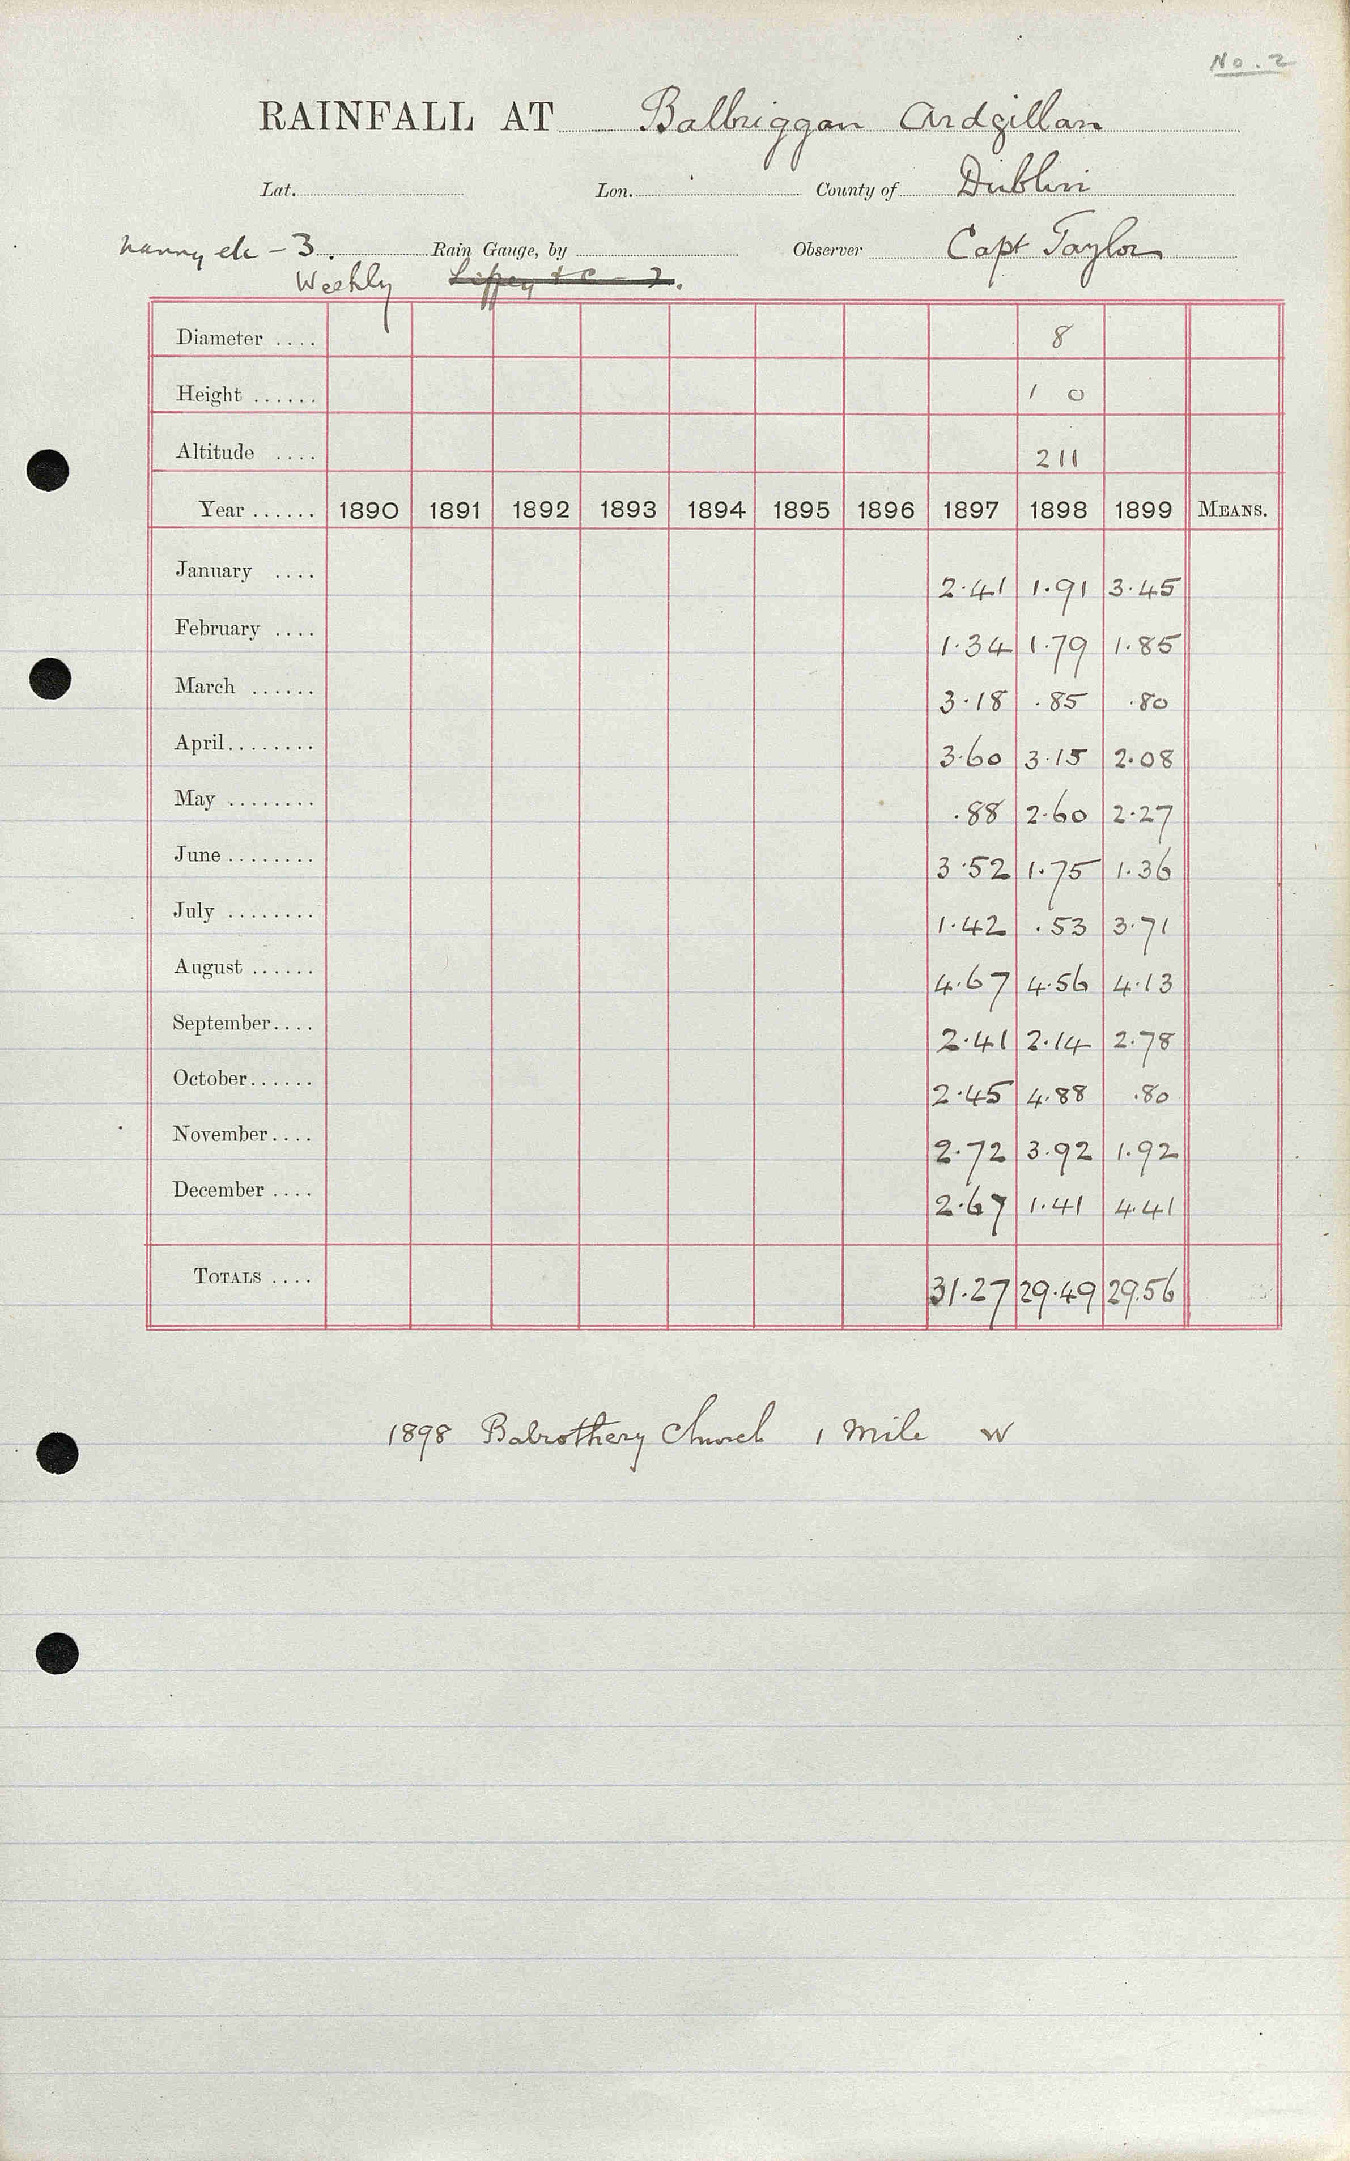 No. 2
RAINFALL AT Balbriggan Ardgillan
Lat. Lon. County of Dublin
Nanny etc - 3. Rain Gauge, by Observer Capt Taylor
Weekly Liffey & C - 7.
Diameter .... 8
Height ...... 1 0
Altitude .... 211
Year ...... 1890 1891 1892 1893 1894 1895 1896 1897 1898 1899 MEANS.
January .... 2.41 1.91 3.45
February .... 1.34 1.79 1.85
March ...... 3.18 .85 .80
April........ 3.60 3.15 2.08
May ........ .88 2.60 2.27
June ........ 3.52 1.75 1.36
July ........ 1.42 .53 3.71
August ...... 4.67 4.56 4.13
September.... 2.41 2.14 2.78
October...... 2.45 4.88 .80
November.... 2.72 3.92 1.92
December .... 2.67 1.41 4.41
TOTALS .... 31.27 29.49 29.56
1898 Balrothery Church 1 Mile W